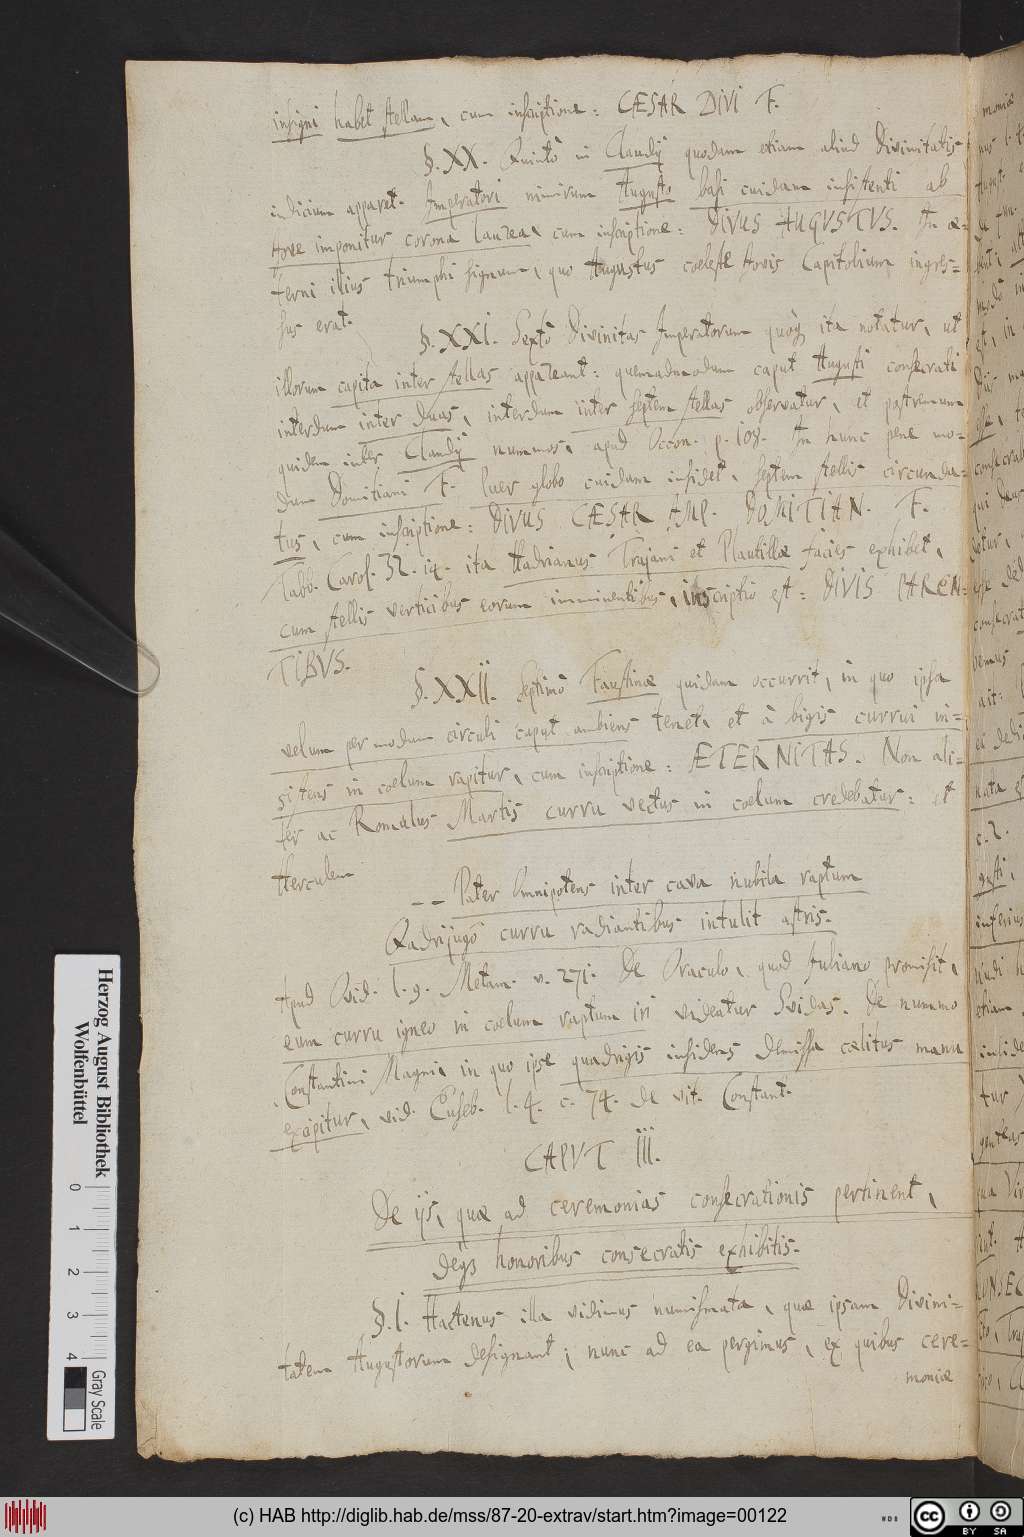 insigni habet stellam, cum inscriptione: CÆSAR DIVI F.
§. XX. Quintò in Claudij quodam etiam aliud Divinitatis
indicium apparet. Imperatori nimirum Augusto basi cuidam insistenti ab
Jove imponitur corona laurea, cum inscriptione: DIVUS AUGVSTVS. In æ=
terni illius triumphi signum, quo Augustus coeleste Jovis Capitolium ingres=
sus erat.
§. XXI. Sextò Divinitas Imperatorum quoq; ita notatur, ut
illorum capita inter stellas appareant: quemadmodum caput Augusti consecrati
interdum inter duas, interdum inter septem stellas observatur, et postremum
quidem inter Claudij nummos, apud Occon. p. 108. In hunc pene mo=
dum Domitiani F. puer globo cuidam insidet, septem stellis circumda=
tus, cum inscriptione: DIVUS CÆSAR IMP. DOMITIAN. F.
Tabb. Carol. 32. 14. ita Hadrianus Trajani et Plautillæ facies exhibet,
cum stellis verticibus eorum imminentibus, inscriptio est: DIVIS PAREN=
TIBVS.
§. XXII. Septimò Faustinæ quidam occurrit, in quo ipsa
velum per modum circuli caput ambiens tenet, et à bigis currui in=
sistens in coelum rapitur, cum inscriptione: ÆTERNITAS. Non ali=
ter ac Romulus Martis curru vectus in coelum credebatur: et
Herculem
-- Pater omnipotens inter cava nubila raptum
Qadrijugo curru radiantibus intulit astris.
Apud Ovid. l. 9. Metam. v. 271. De Oraculo, quod Juliano promisit,
eum curru igneo in coelum raptum iri videatur Svidas. De nummo
Constantini Magni, in quo ipse quadrigis insidens demissa cælitus manu
excipitur, vid. Euseb. l. 4. c. 74. de vit. Constant.
CAPVT III.
De ijs, quæ ad ceremonias consecrationis pertinent,
deqs honoribus consecratis exhibitis.
§. I. Hactenus illa vidimus numismata, quæ ipsam Divini=
tatem Augustorum designant; nunc ad ea pergimus, ex quibus cere=
moniæ
Herzog August Bibliothek
Wolfenbüttel
0 1 2 3 4
Gray Scale
(c) HAB http://diglib.hab.de/mss/87-20-extrav/start.htm?image=00122
cc BY SA